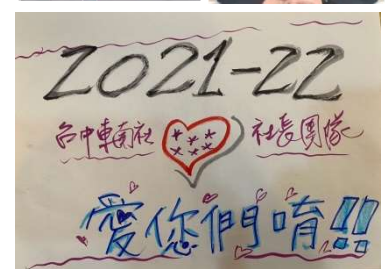 2021-22
台中東南社 社長團隊
愛您們唷!!